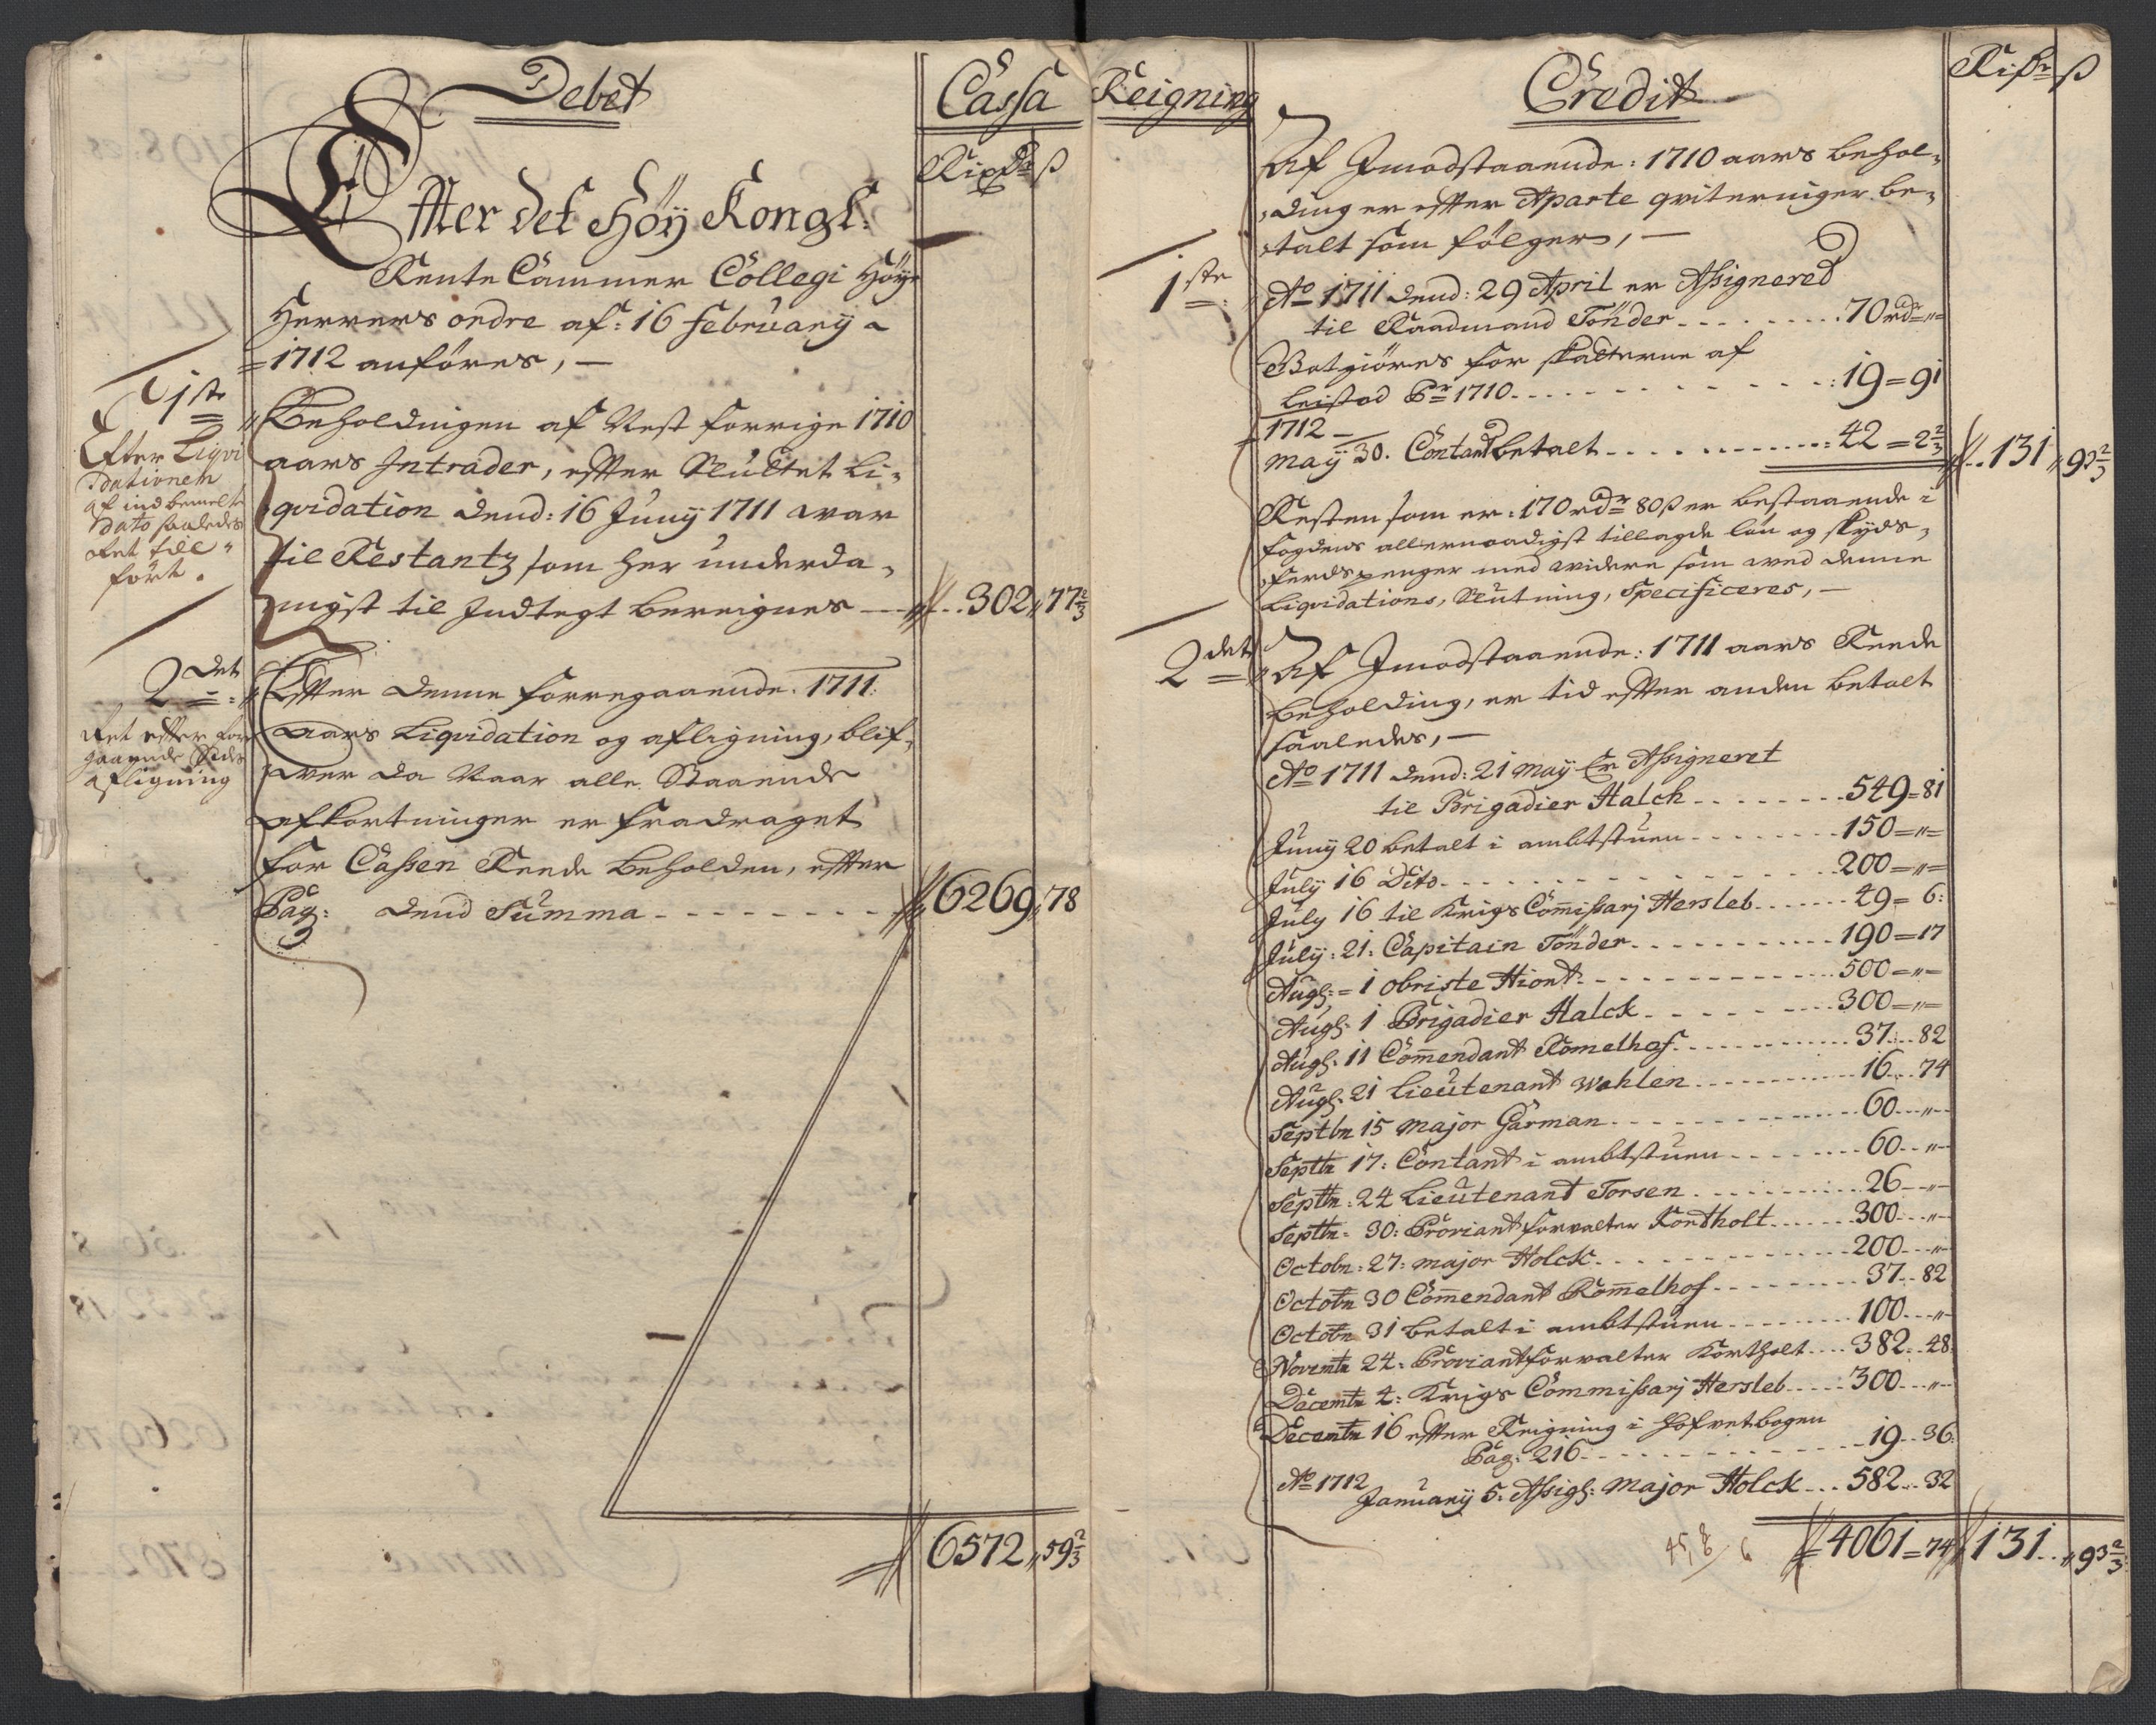 Debet
Cassa
Rixdr ß
Effter det Höÿ Kongl:
Rente Cammer Collegi Höÿe
Herrers ordre af: 16 Februarÿ a
1712 anföres, —
1ste
Beholdningen af Nest forrige 1710
aars Intrader, effter Sluttet Li-
qvidation dend: 16 Junÿ 1711 war
til Restantz som her underda-
nigst til Indtegt bereignes — 302 „ 77 2/3
Efter Liqvi
dationen
af indbemelte
dato saaledes
ret till-
fört.
2det
Effter denne forregaaende 1711:
aars Liqvidation og afligning, blif-
wer da Naar alle Staaende
afkortninger er fradraget
for Cassen Reede beholden, effter
Pag: dend Summa - - - - - - - 6269 „ 78
Ret effter for
gaaende Sides
afligning
6572 „ 59 2/3
Reigning
Credit
Rixdr ß
Af Imodstaaende: 1710 aars behol-
ding er effter Aparte qviteringer be-
talt som fölger, —
1ste
Ao 1711 dend: 29 April er Assigneret
til Raadmand Tönder - - - - - - 70 rdr „
Godtgiöres for skatterne af
Leistad Pr 1710 - - - - - - : 19 = 91
1712 —
Maÿ 30. Contant betalt - - - - - - : 42 = 2 2/3 131 „ 93 2/3
Resten som er: 170 rdr 80 ß er bestaaende i
fogdens allernaadigst tillagde lön og skyds-
ferds penger med widere som wed denne
Liqvidations, Slutning, Specificeres, —
2det
Af Imodstaaende: 1711 aars Reede
beholding, er tid effter anden betalt
saaledes, —
Ao 1711 dend: 21 Maÿ Er Assigneret
til Brigadier Halck - - - - - - 549 = 81
Junÿ 20 betalt i ambtstuen - - - - - - 150 = „ =
Julÿ 16 Dito - - - - - - 200 = „ =
Julÿ 16 til Krigs Commissarj Hersleb - - - - - - 49 = 6:
Julÿ: 21: Capitain Tönder - - - - - - 190 = 17
Aug: = 1 Obriste Hiort - - - - - - 500 = „ =
Aug: 1 Brigadier Halck - - - - - - 300 = „ =
Aug: 11 Commendant Romelhof - - - - - - 37 - - 82
Aug: 21 Lieutenant Wahlen - - - - - - 16 - - 74
Septbr 15 Major Garman - - - - - - 60 - - „ -
Septbr 17: Contant i ambtstuen - - - - - - 60 - - „ -
Septbr: 24 Lieutenant Torsen - - - - - - 26 - - „ -
Septbr: 30: Proviantforvalter Kortholt - - - - - - 300 - - „ -
Octobr: 27: Major Holck - - - - - - 200 - - „ -
Octobr 30 Commendant Rommelhof - - - - - - 37 - - 82
Octobr 31 betalt i ambtstuen - - - - - - 100 - - „ -
Novembr 24: Proviantforvalter Kortholt - - - - 382 - - 48
Decembr 4: Krigs Commissarj Hersleb - - - - 300 - - „ -
Decembr 16 effter Reigning i Hofretbogen
Pag: 216 - - - - - - 19 - - 36:
Ao 1712
Januarÿ 5: Assig: Major Holck - - - 582 - - 32
4061 = 74 131 - - „ 93 2/3